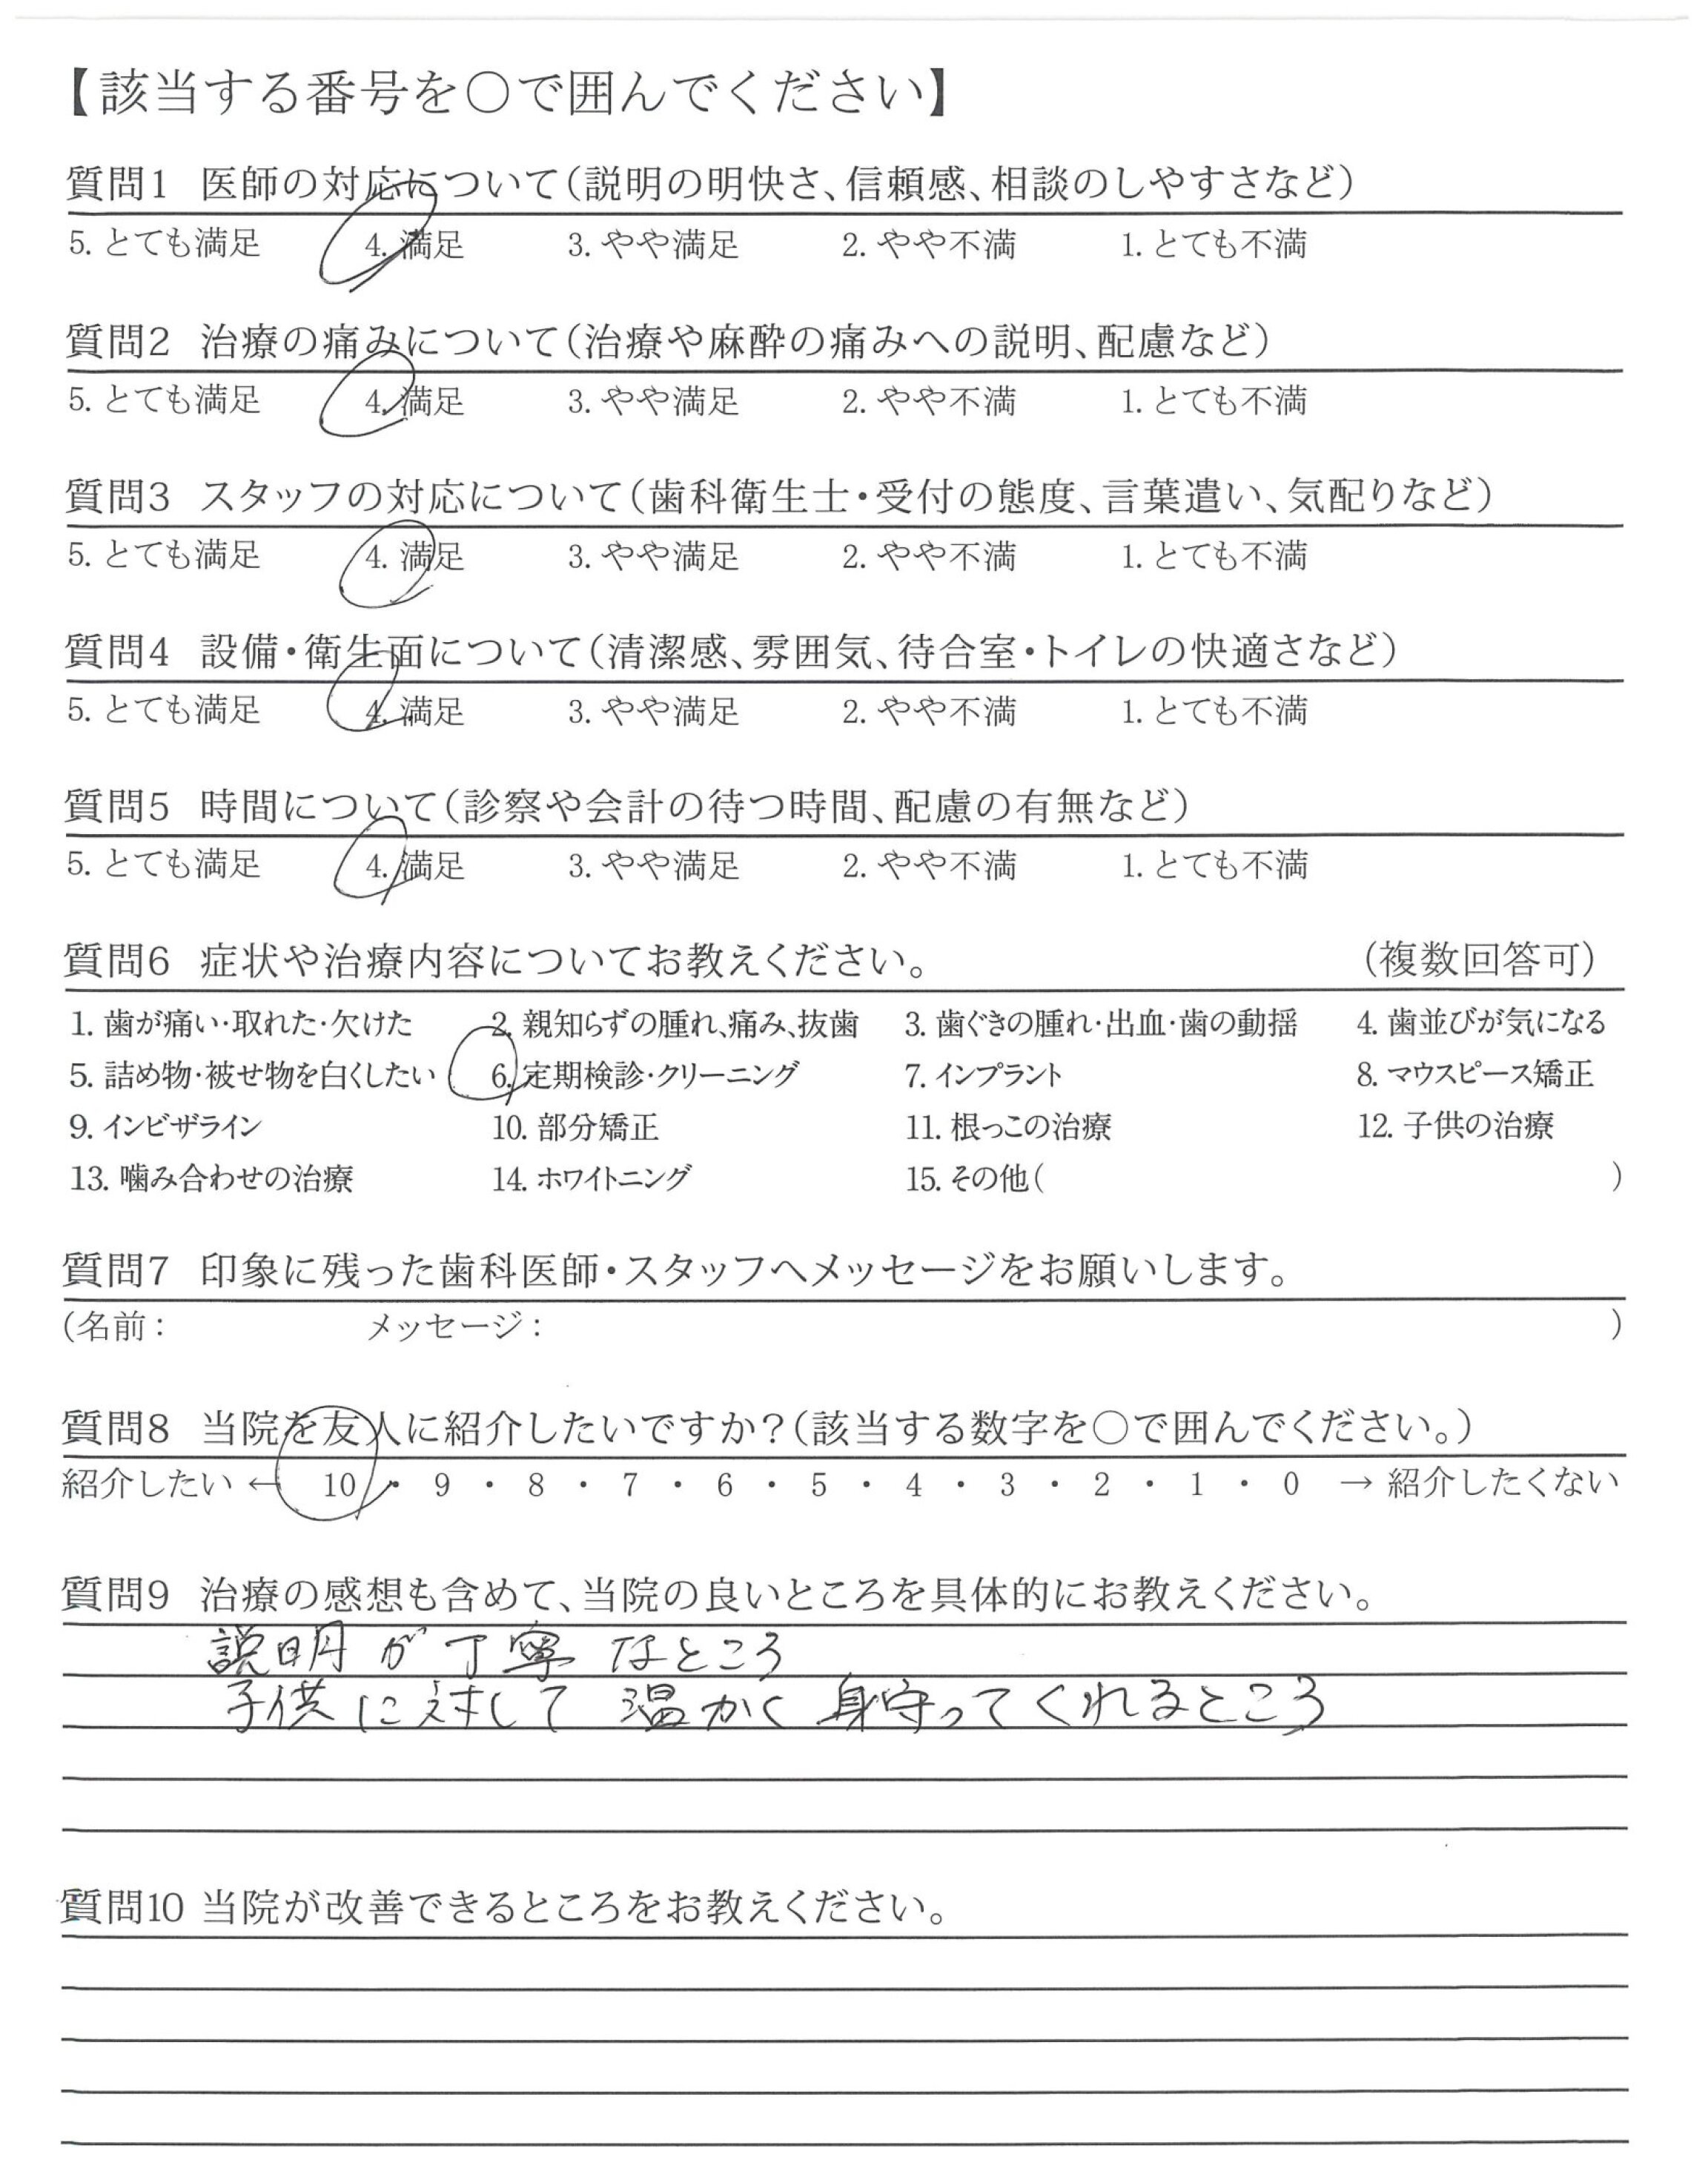 【該当する番号を○で囲んでください】
質問1 医師の対応について(説明の明快さ、信頼感、相談のしやすさなど)
5. とても満足 4. 満足 3. やや満足 2. やや不満 1. とても不満
質問2 治療の痛みについて(治療や麻酔の痛みへの説明、配慮など)
5. とても満足 4. 満足 3. やや満足 2. やや不満 1. とても不満
質問3 スタッフの対応について(歯科衛生士・受付の態度、言葉遣い、気配りなど)
5. とても満足 4. 満足 3. やや満足 2. やや不満 1. とても不満
質問4 設備・衛生面について(清潔感、雰囲気、待合室・トイレの快適さなど)
5. とても満足 4. 満足 3. やや満足 2. やや不満 1. とても不満
質問5 時間について(診察や会計の待つ時間、配慮の有無など)
5. とても満足 4. 満足 3. やや満足 2. やや不満 1. とても不満
質問6 症状や治療内容についてお教えください。 (複数回答可)
1. 歯が痛い・取れた・欠けた 2. 親知らずの腫れ、痛み、抜歯 3. 歯ぐきの腫れ・出血・歯の動揺 4. 歯並びが気になる
5. 詰め物・被せ物を白くしたい 6. 定期検診・クリーニング 7. インプラント 8. マウスピース矯正
9. インビザライン 10. 部分矯正 11. 根っこの治療 12. 子供の治療
13. 噛み合わせの治療 14. ホワイトニング 15. その他( )
質問7 印象に残った歯科医師・スタッフへメッセージをお願いします。
(名前: メッセージ: )
質問8 当院を友人に紹介したいですか?(該当する数字を○で囲んでください。)
紹介したい ← 10 ・ 9 ・ 8 ・ 7 ・ 6 ・ 5 ・ 4 ・ 3 ・ 2 ・ 1 ・ 0 → 紹介したくない
質問9 治療の感想も含めて、当院の良いところを具体的にお教えください。
説明が丁寧なところ
子供に対して 温かく 身守ってくれるところ
質問10 当院が改善できるところをお教えください。